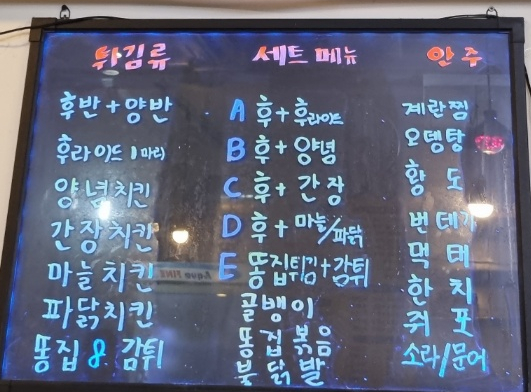 튀김류
후반+양반
후라이드 1마리
양념치킨
간장치킨
마늘치킨
파닭치킨
똥집 & 감튀
세트 메뉴
A 후+후라이드
B 후+양념
C 후+간장
D 후+마늘/파닭
E 똥집튀김+감튀
골뱅이
똥집볶음
불닭발
안주
계란찜
오뎅탕
황도
번데기
먹태
한치
쥐포
소라/문어